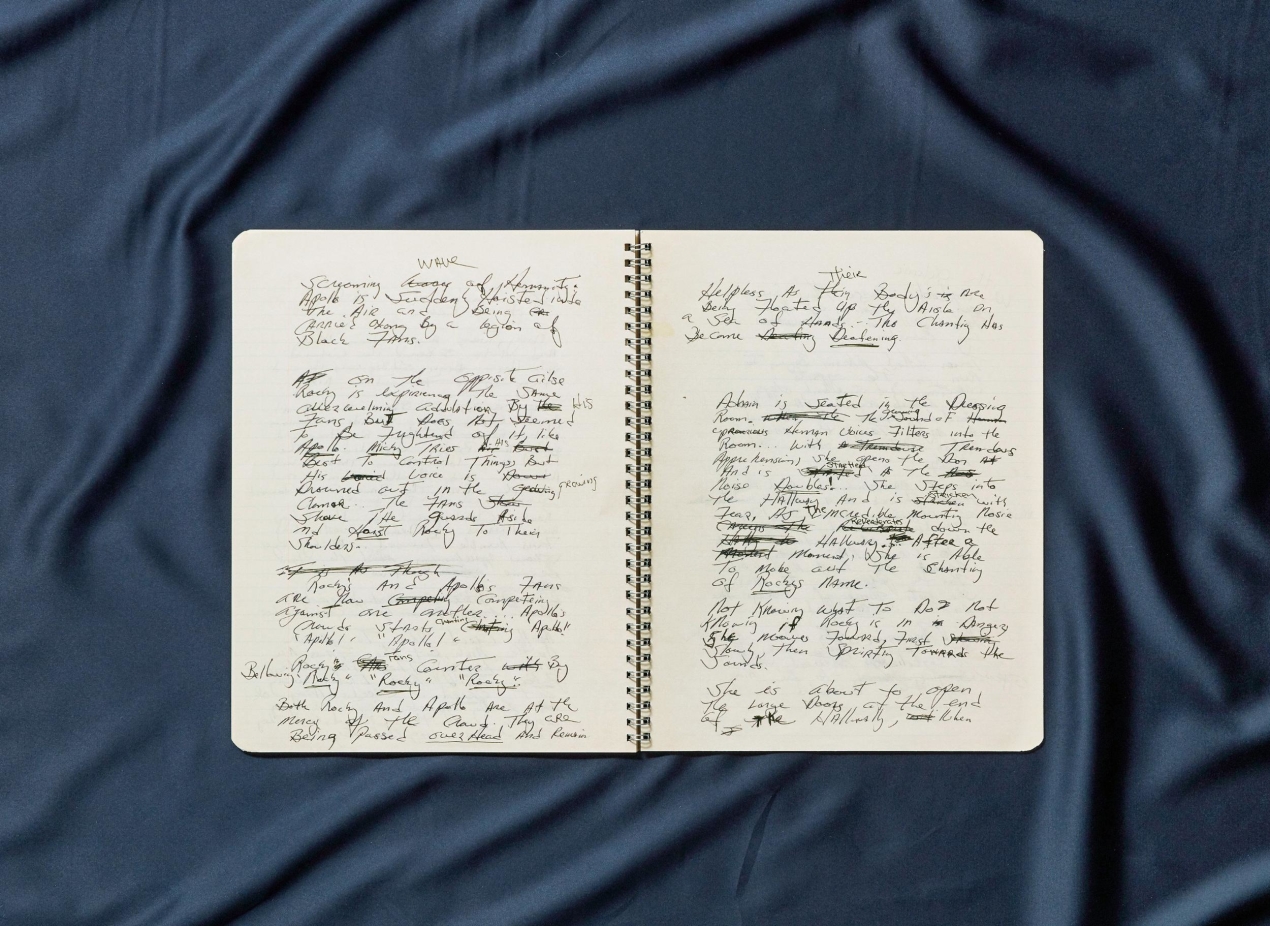 WAVE
Screaming of Humanity.
Apollo is Suddenly Hoisted into
the Air and Being
Carried along By a legion of
Black Fans.
on the opposite aisle
Rocky is experiencing the Same
overwhelming adulation By the His
Fans, But Does Not Seemed
to Be Frightened of it like
Apollo. Micky Tries His
Best To Control Things But
His voice is
Drowned out in the growing
Clamor. The Fans
Shove The guards Aside
nd Hoist Rocky To Their
Shoulders.
It is As Though
Rocky's And Apollo's Fans
are Now Competing Competeing
against one another... Apollo's
Crowds Starts Chanting Apollo!"
"Apollo!" "Apollo!"
Rocky's Fans Counter with By
Bellowing "Rocky" "Rocky" "Rocky".
Both Rocky And Apollo Are At the
Mercy of the Crowd. They are
Being Passed overHead And Remain
Their
Helpless As Body's is Are
Being Floated Up the Aisle On
a Sea of Hands... The Chanting Has
Become Deafening
Adrain is Seated in the Dressing
Room. The Sound of
Human Voices Filters into the
Room... With Tremdous
Apprehension, She opens the Door
And is As the
Noise Doubles!.. She Steps into
the Hallway And is Stricken with
Fear, As The Incredible Mounting Nosie
Reverberates down the
Hallway. After a
Moment Moment, She is Able
To Make out The Chanting
of Rockys Name.
Not Knowing what To Do? Not
Knowing if Rocky is in Danger
She Moves Foward, First
Slowly Then Sprinting Towards the
Sounds.
She is about to open
The Large Doors at the end
of The Hallway, When